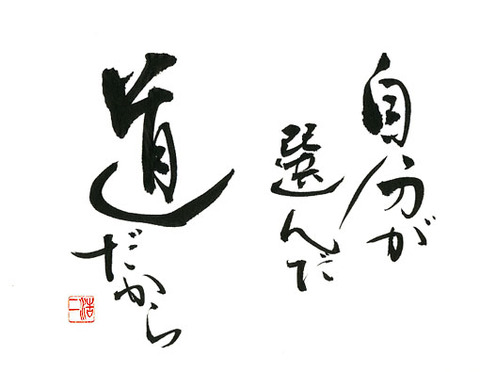 自分が
選んだ
道だから
浩二